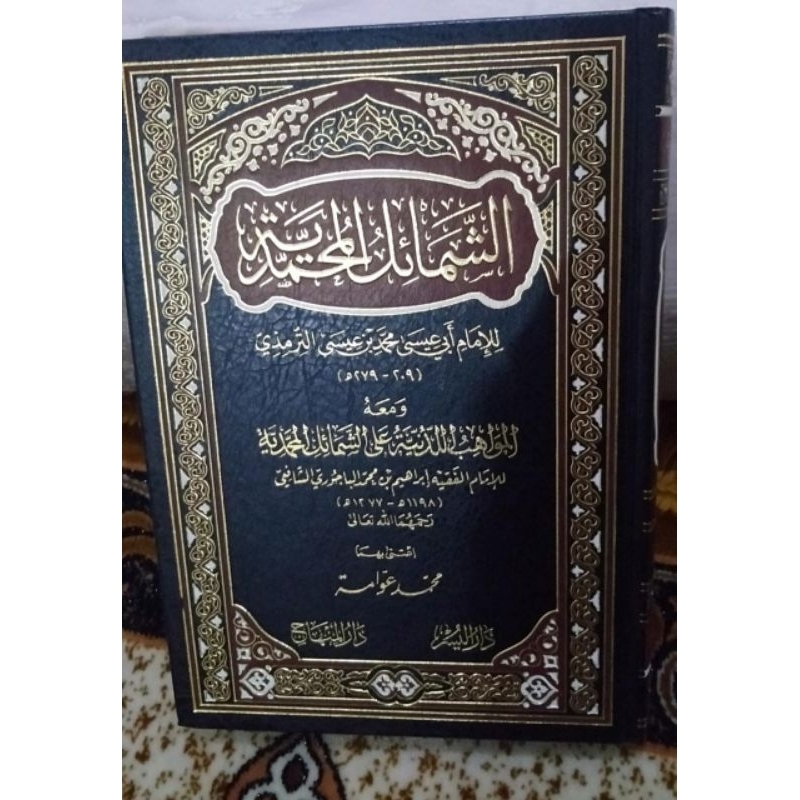 الشَّمَائِلُ المُحَمَّدِيَّة
ﷺ
لِلإِمَامِ أَبِي عِيسَى مُحَمَّد بْن عِيسَى التِّرْمِذِي
(٢٠٩ - ٢٧٩ه)
وَمَعَهُ
المَوَاهِبُ اللَّدُنِيَّةُ عَلَى الشَّمَائِلِ المُحَمَّدِيَّة
للإمَام الفَقيْه إبراهيم بْن محمّد الباجُوري الشافِعي
(١١٩٨ه - ١٢٧٧ه)
رَحِمَهُمَا الله تعَالىٰ
اعتنى بهمَا
محمّد عوّامة
دَارُ اليُسْر
دَارُ المِنْهَاج